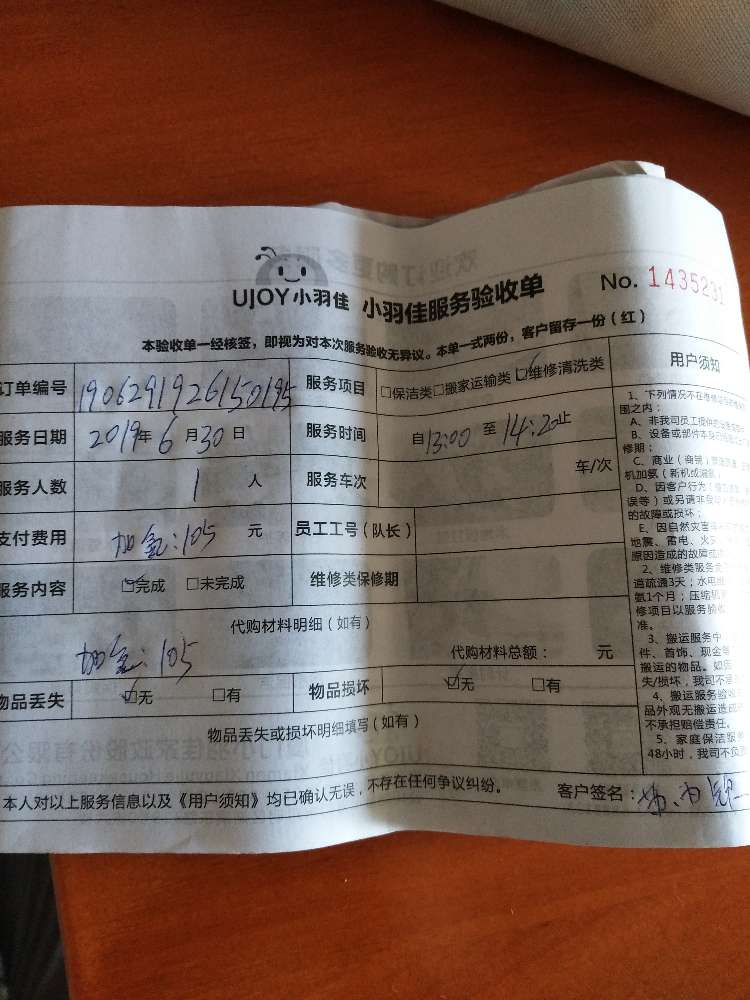 UJOY小羽佳 小羽佳服务验收单 No. 1435231
本验收单一经核签，即视为对本次服务验收无异议。本单一式两份，客户留存一份（红）
订单编号 1906291926150195 服务项目 □保洁类□搬家运输类☑维修清洗类
服务日期 2019年6月30日 服务时间 自13:00至14:20止
服务人数 1 人 服务车次 车/次
支付费用 加氨:105 元 员工工号（队长）
服务内容 ☑完成 □未完成 维修类保修期
代购材料明细（如有）
加氨:105 代购材料总额： 元
物品丢失 ☑无 □有 物品损坏 ☑无 □有
物品丢失或损坏明细填写（如有）
本人对以上服务信息以及《用户须知》均已确认无误，不存在任何争议纠纷。 客户签名：
用户须知
1、下列情况不在
围之内；
A、非我司员工提供
B、设备或部件本身
修期；
C、商业（商铺）
机加氨（新机或漏
D、因客户行为
误等）或另请非
的故障或损坏；
E、因自然灾害
地震、雷电、火灾
原因造成的故障或
2、维修类服务
道疏通3天；水电维
氨1个月；压缩机
修项目以服务验收
准。
3、搬运服务中
件、首饰、现金等
搬运的物品。如因
失/损坏，我司不承
4、搬运服务验收
品外观无搬运造成
不承担赔偿责任。
5、家庭保洁服务
48小时，我司不负责